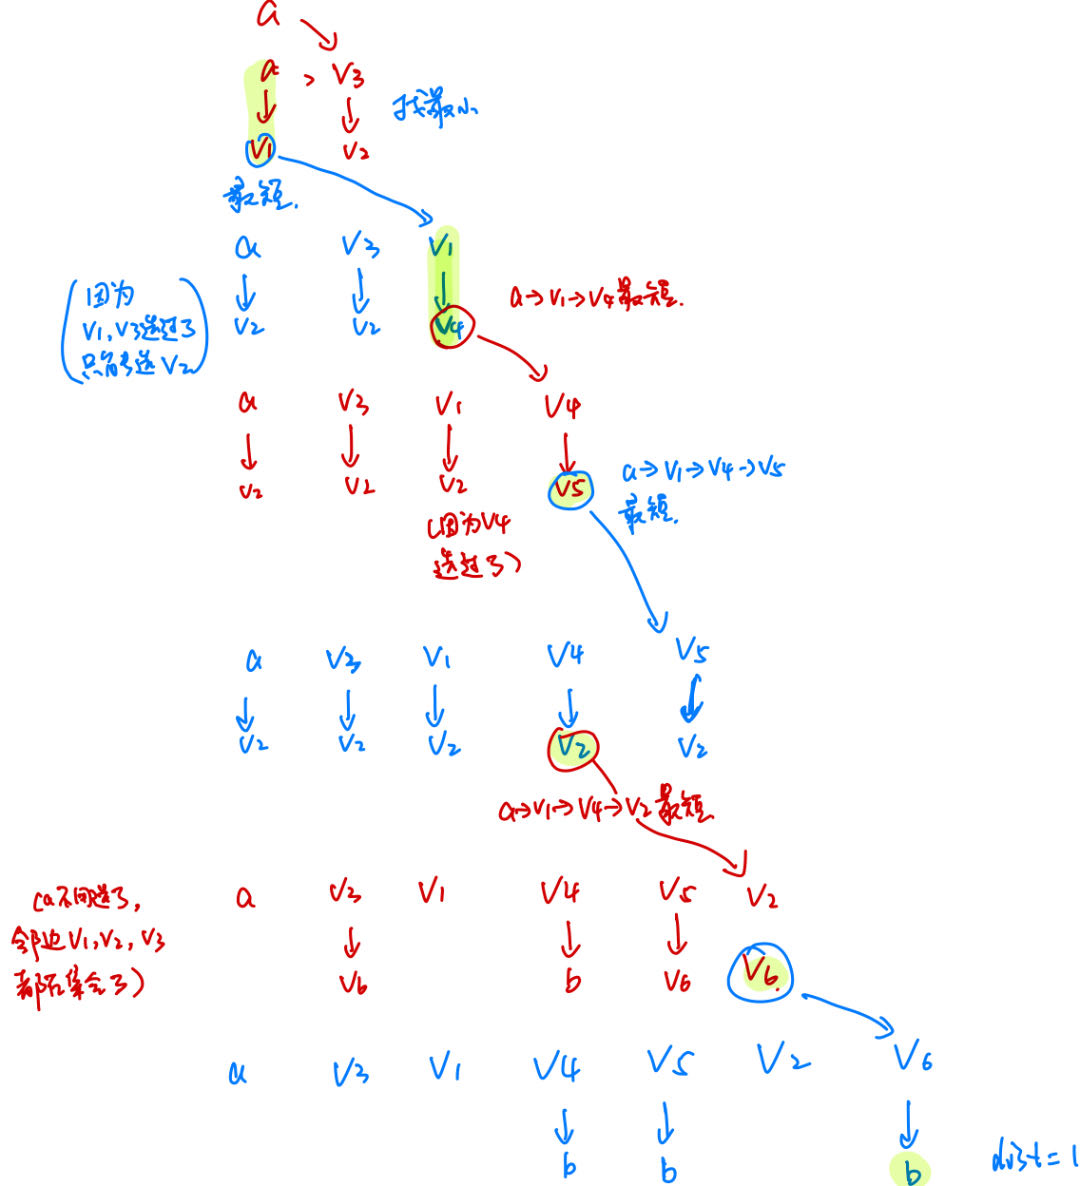 a
a , V3
找最小
V1 V2
最短.
a V3 V1
(因为
V1,V3选过了
只能选V2)
V2 V2 V4
a→V1→V4最短.
a V3 V1 V4
V2 V2 V2 V5
a→V1→V4→V5
最短.
(因为V4
选过了)
a V3 V1 V4 V5
V2 V2 V2 V2 V2
a→V1→V4→V2最短.
(a不用选了,
邻边V1,V2,V3
都在集合了)
a V3 V1 V4 V5 V2
V6 b V6 V6.
a V3 V1 V4 V5 V2 V6
b b b
dist=1